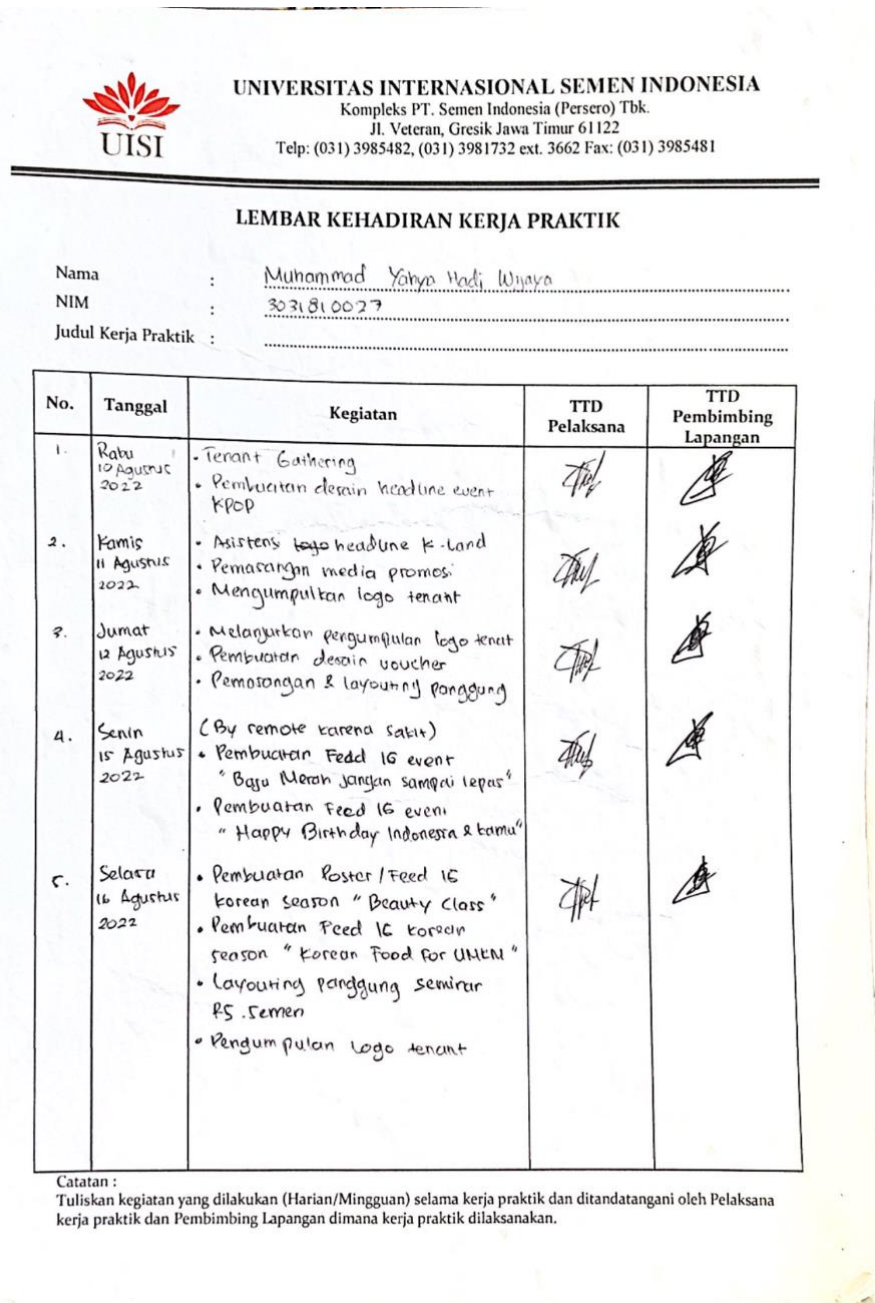 UISI
UNIVERSITAS INTERNASIONAL SEMEN INDONESIA
Kompleks PT. Semen Indonesia (Persero) Tbk.
Jl. Veteran, Gresik Jawa Timur 61122
Telp: (031) 3985482, (031) 3981732 ext. 3662 Fax: (031) 3985481
LEMBAR KEHADIRAN KERJA PRAKTIK
Nama : Muhammad Yahya Hadi Wijaya
NIM : 3031810027
Judul Kerja Praktik :
No. Tanggal Kegiatan TTD Pelaksana TTD Pembimbing Lapangan
1. Rabu 10 Agustus 2022
• Tenant Gathering
• Pembuatan desain headline event
KPOP
2. Kamis 11 Agustus 2022
• Asistensi headline K-Land
• Pemasangan media promosi
• Mengumpulkan logo tenant
3. Jumat 12 Agustus 2022
• Melanjutkan pengumpulan logo tenat
• Pembuatan desain voucher
• Pemasangan & layouting panggung
4. Senin 15 Agustus 2022
(By remote karena sakit)
• Pembuatan Fedd IG event
"Baju Merah jangan sampai lepas"
• Pembuatan Feed IG event
"Happy Birthday Indonesia & kamu"
5. Selasa 16 Agustus 2022
• Pembuatan Poster/Feed IG
korean season "Beauty Class"
• Pembuatan Feed IG korean
season "Korean Food For UMKM"
• Layouting panggung seminar
RS. Semen
• Pengumpulan logo tenant
Catatan :
Tuliskan kegiatan yang dilakukan (Harian/Mingguan) selama kerja praktik dan ditandatangani oleh Pelaksana
kerja praktik dan Pembimbing Lapangan dimana kerja praktik dilaksanakan.